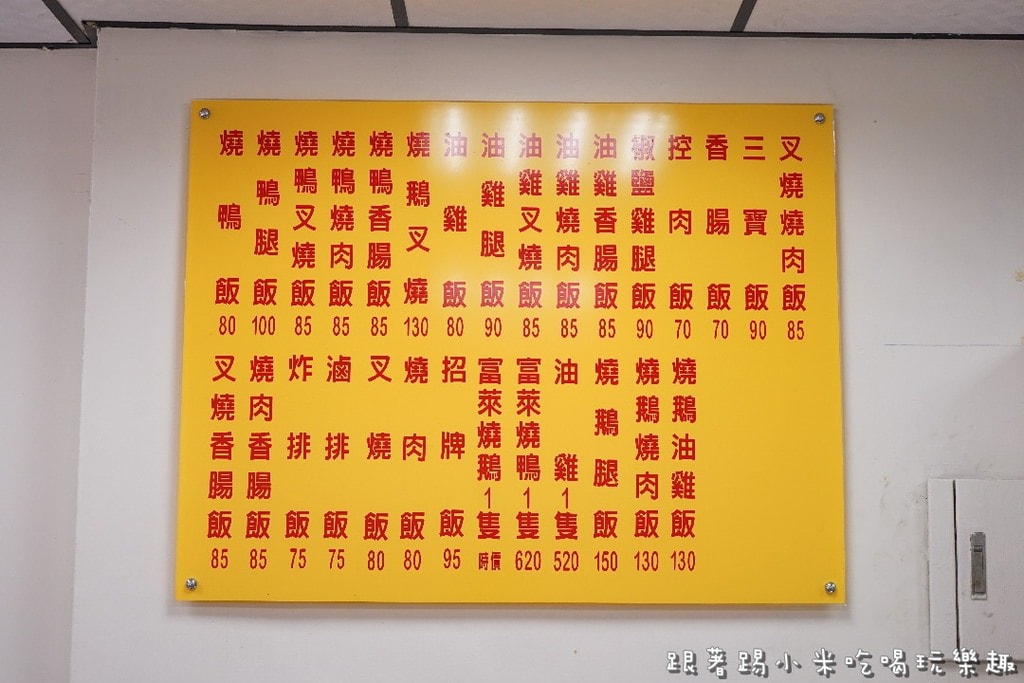 燒鴨飯 80
燒鴨腿飯 100
燒鴨叉燒飯 85
燒鴨燒肉飯 85
燒鴨香腸飯 85
燒鵝叉燒 130
油雞飯 80
油雞腿飯 90
油雞叉燒飯 85
油雞燒肉飯 85
油雞香腸飯 85
椒鹽雞腿飯 90
控肉飯 70
香腸飯 70
三寶飯 90
叉燒燒肉飯 85
叉燒香腸飯 85
燒肉香腸飯 85
炸排飯 75
滷排飯 75
叉燒飯 80
燒肉飯 80
招牌飯 95
富萊燒鵝1隻 時價
富萊燒鴨1隻 620
油雞1隻 520
燒鵝腿飯 150
燒鵝燒肉飯 130
燒鵝油雞飯 130
跟著踢小米吃喝玩樂趣